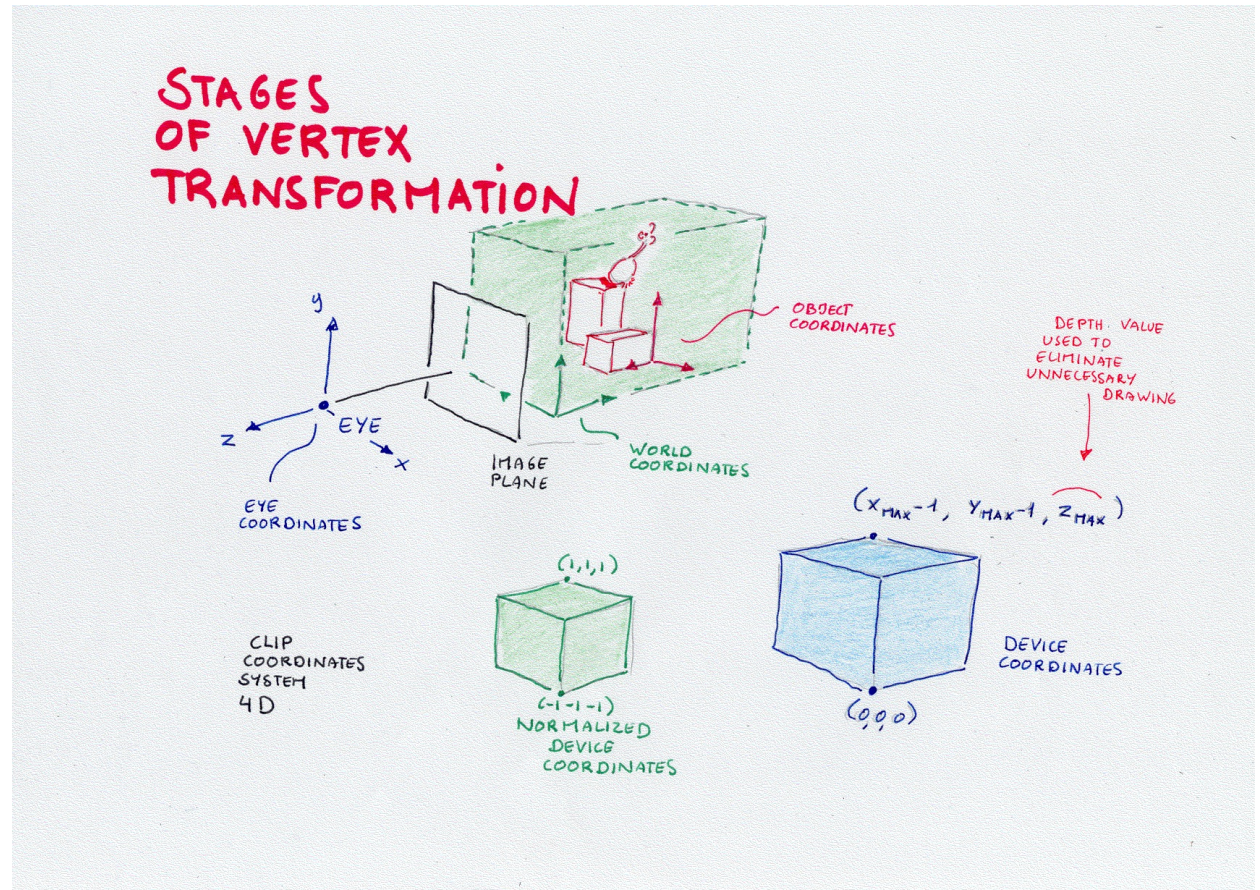 STAGES
OF VERTEX
TRANSFORMATION
y
z
EYE
x
EYE
COORDINATES
IMAGE
PLANE
WORLD
COORDINATES
OBJECT
COORDINATES
DEPTH VALUE
USED TO
ELIMINATE
UNNECESSARY
DRAWING
(XMAX-1, YMAX-1, ZMAX)
DEVICE
COORDINATES
(0,0,0)
CLIP
COORDINATES
SYSTEM
4D
(1,1,1)
(-1-1-1)
NORMALIZED
DEVICE
COORDINATES